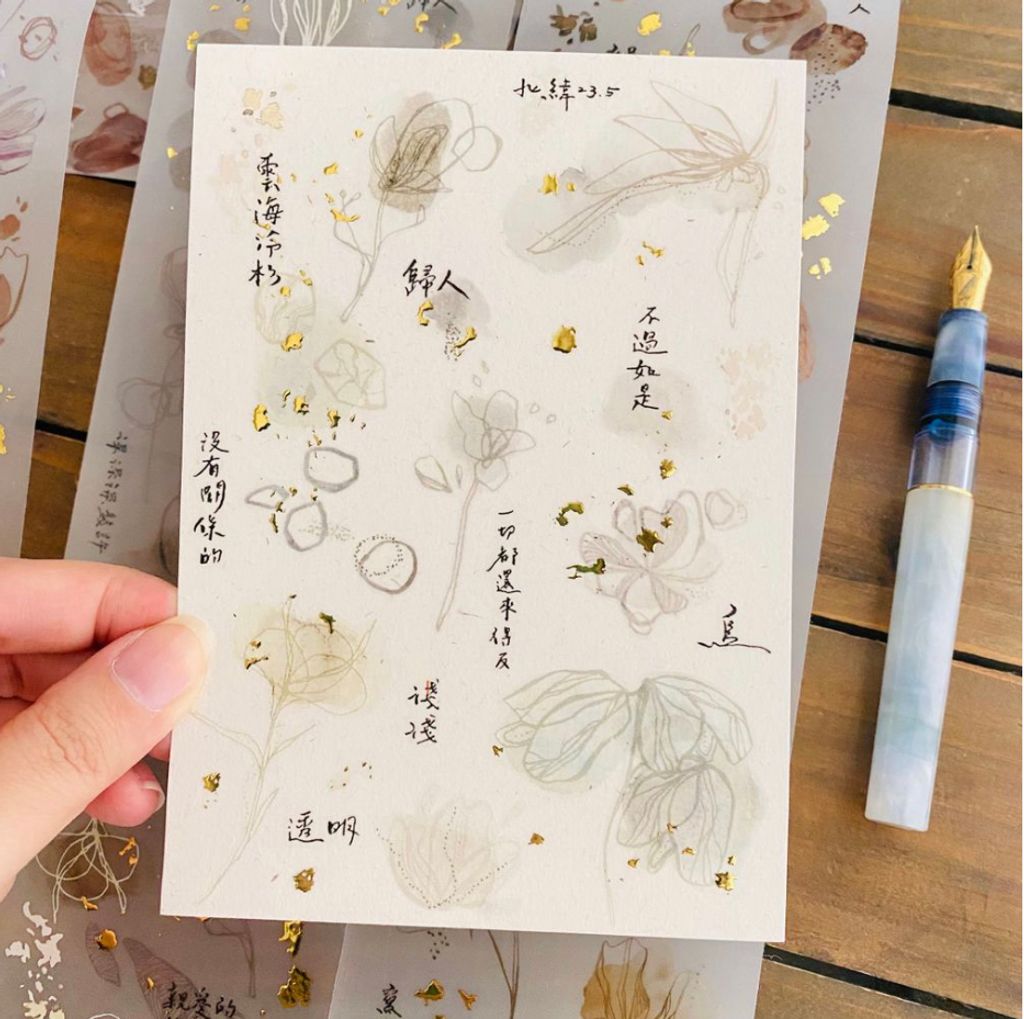 北緯23.5
雲海冷杉
歸人
不過如是
沒有關係的
一切都還來得及
淺淺
透明
親愛的
人